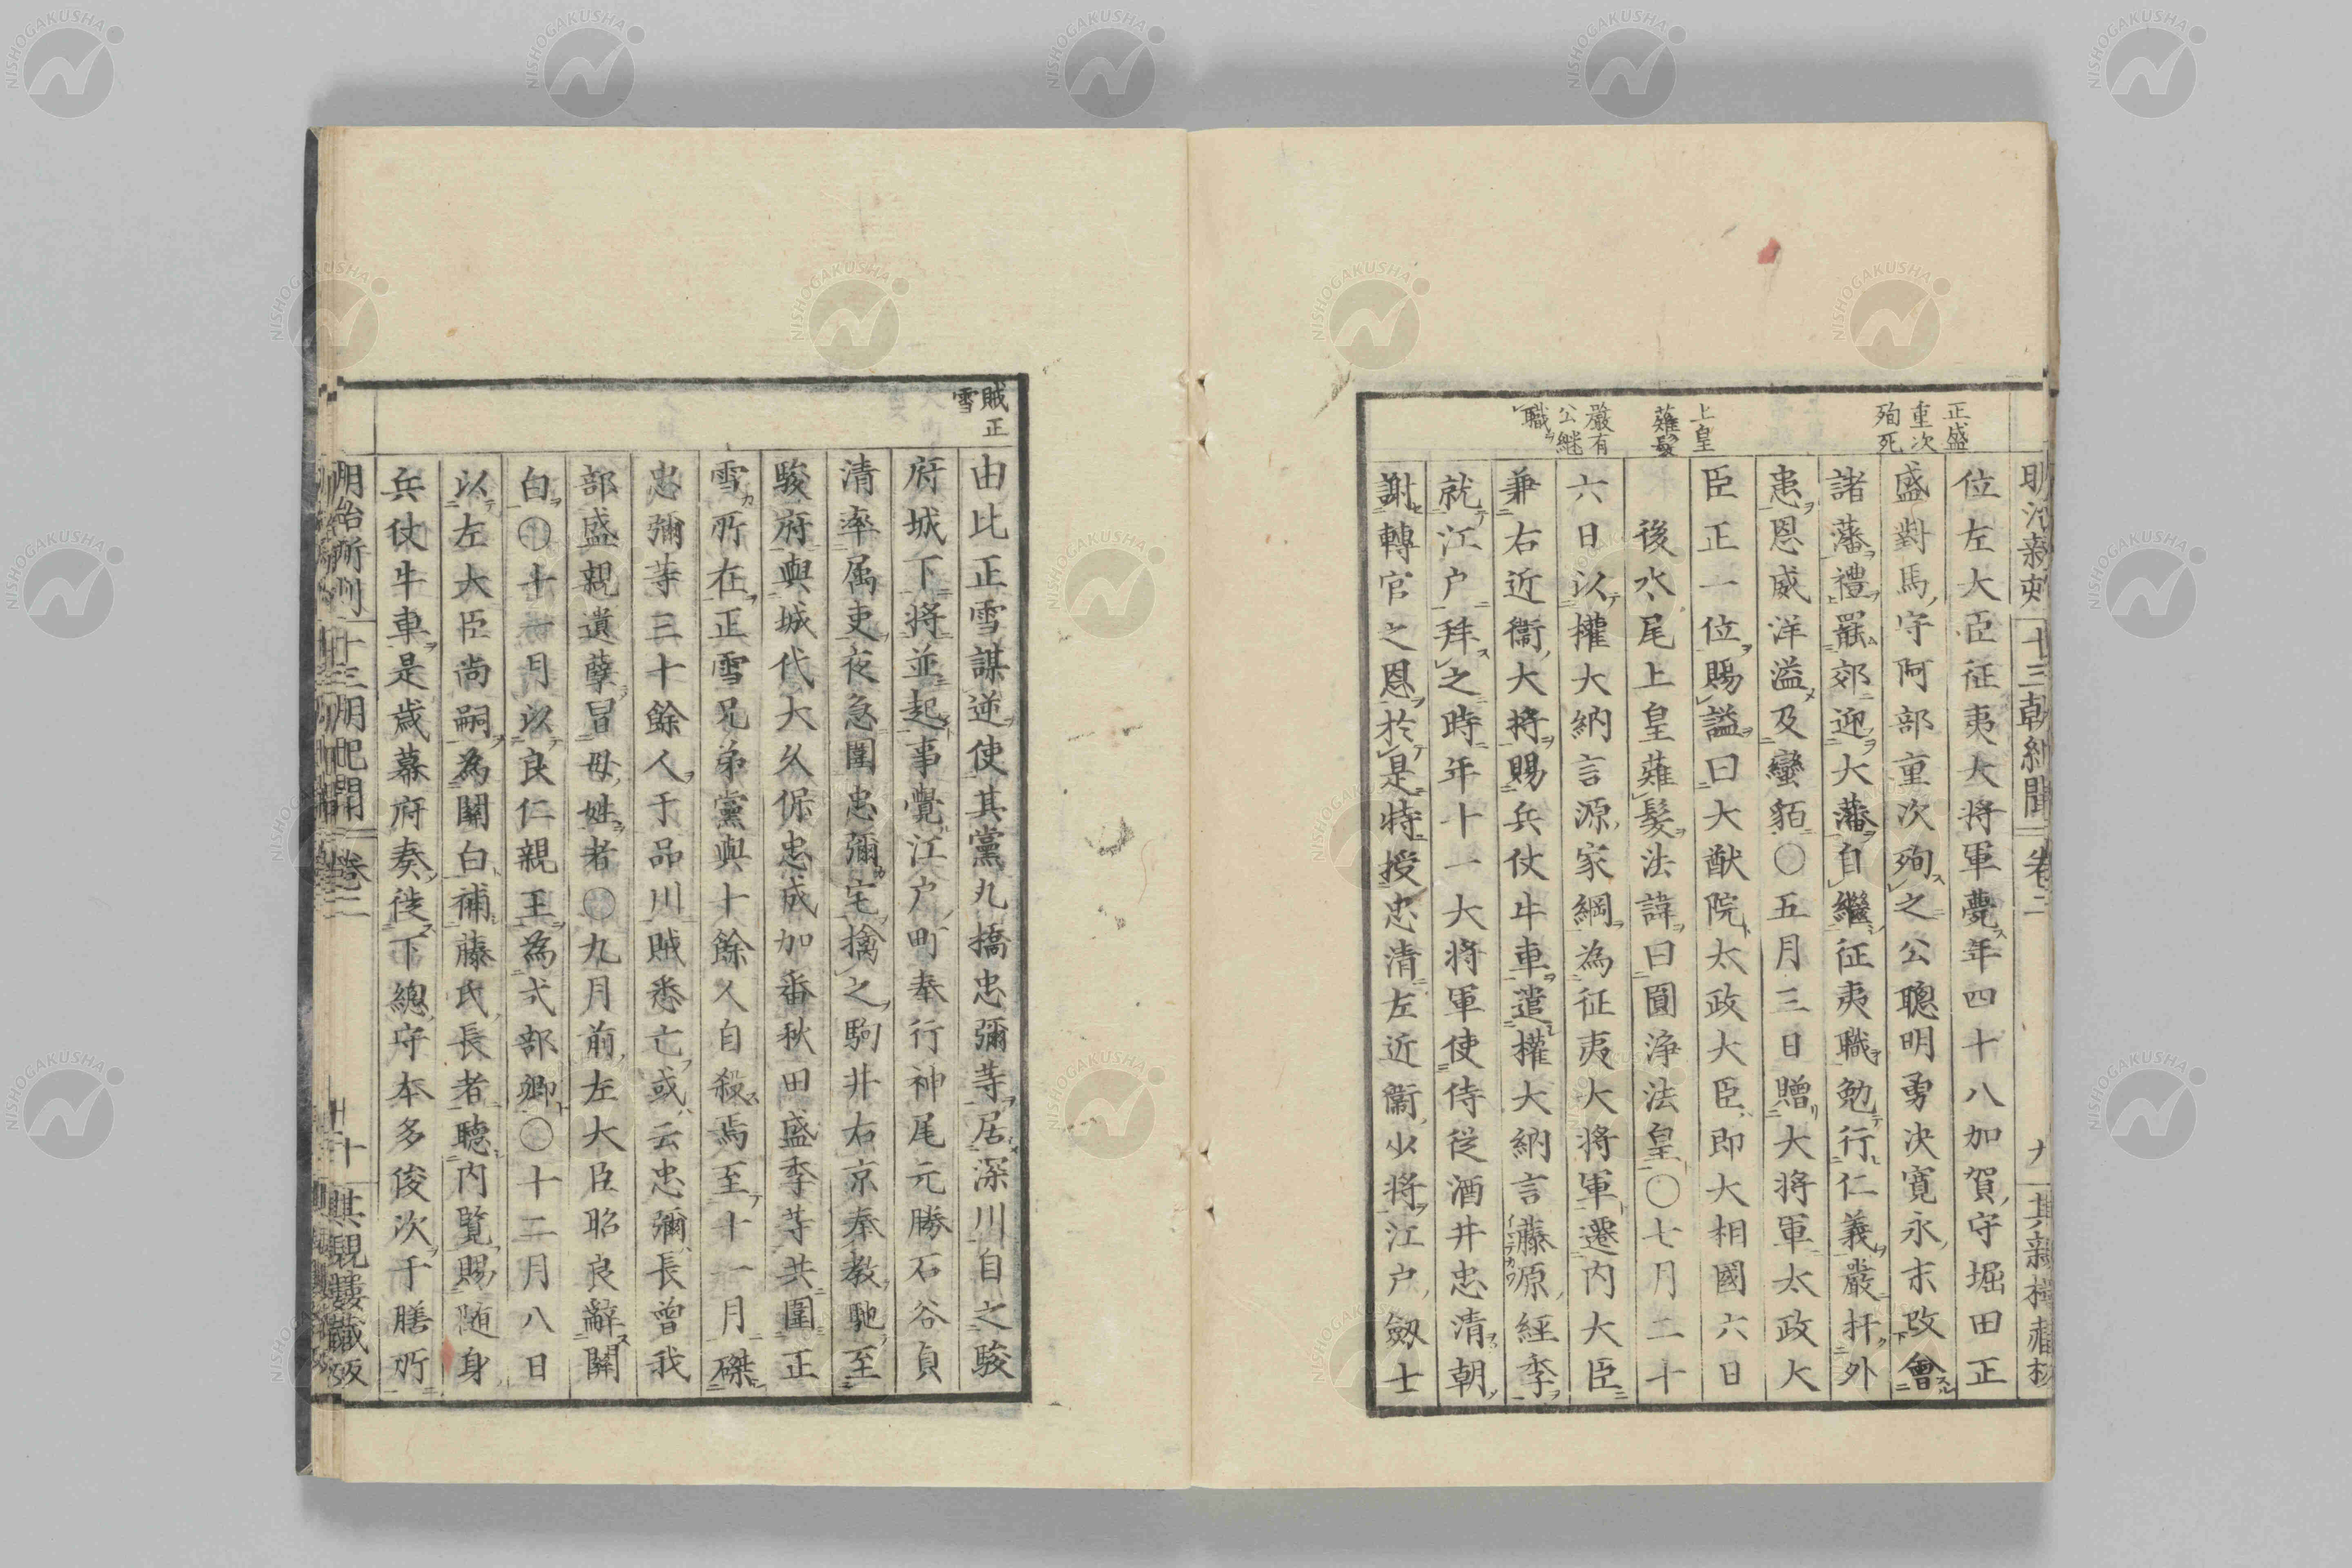 正盛
重次
殉死
上皇
薙髮
嚴有
公継
職
位左大臣征夷大将軍薨年四十八加賀守堀田正
盛對馬守阿部重次殉之公聰明勇決寛永末改會
諸藩禮罷郊迎大藩自繼征夷職勉行仁義嚴扞外
患恩威洋溢及蠻貊〇五月三日贈大将軍太政大
臣正一位賜謚曰大猷院太政大臣即大相國六日
後水尾上皇薙髮法諱曰圓淨法皇〇七月二十
六日以權大納言源家綱為征夷大将軍遷内大臣
兼右近衞大将賜兵仗牛車遣權大納言藤原經季
就江户拜之時年十一大将軍使侍従酒井忠清朝
謝轉官之恩於是特授忠清左近衞少将江户劔士
賊正
雪
由比正雪謀逆使其黨丸橋忠彌等居深川自之駿
府城下将並起事覺江户町奉行神尾元勝石谷貞
清率属吏夜急圍忠彌宅擒之駒井右京奉教馳至
駿府與城代大久保忠成加番秋田盛季等共圍正
雪所在正雪兄弟黨與十餘人自殺焉至十一月磔
忠彌等三十餘人于品川賊悉亡或云忠彌長曾我
部盛親遺孽冒母姓者〇九月前左大臣昭良辭關
白〇十一月以良仁親王為弍部卿〇十二月八日
以左大臣尚嗣為關白補藤氏長者聽内覽賜随身
兵仗牛車是歳幕府奏徙下總守本多俊次于膳所
十三朝紀聞
卷二
十
其親樓藏版
NISHOGAKUSHA